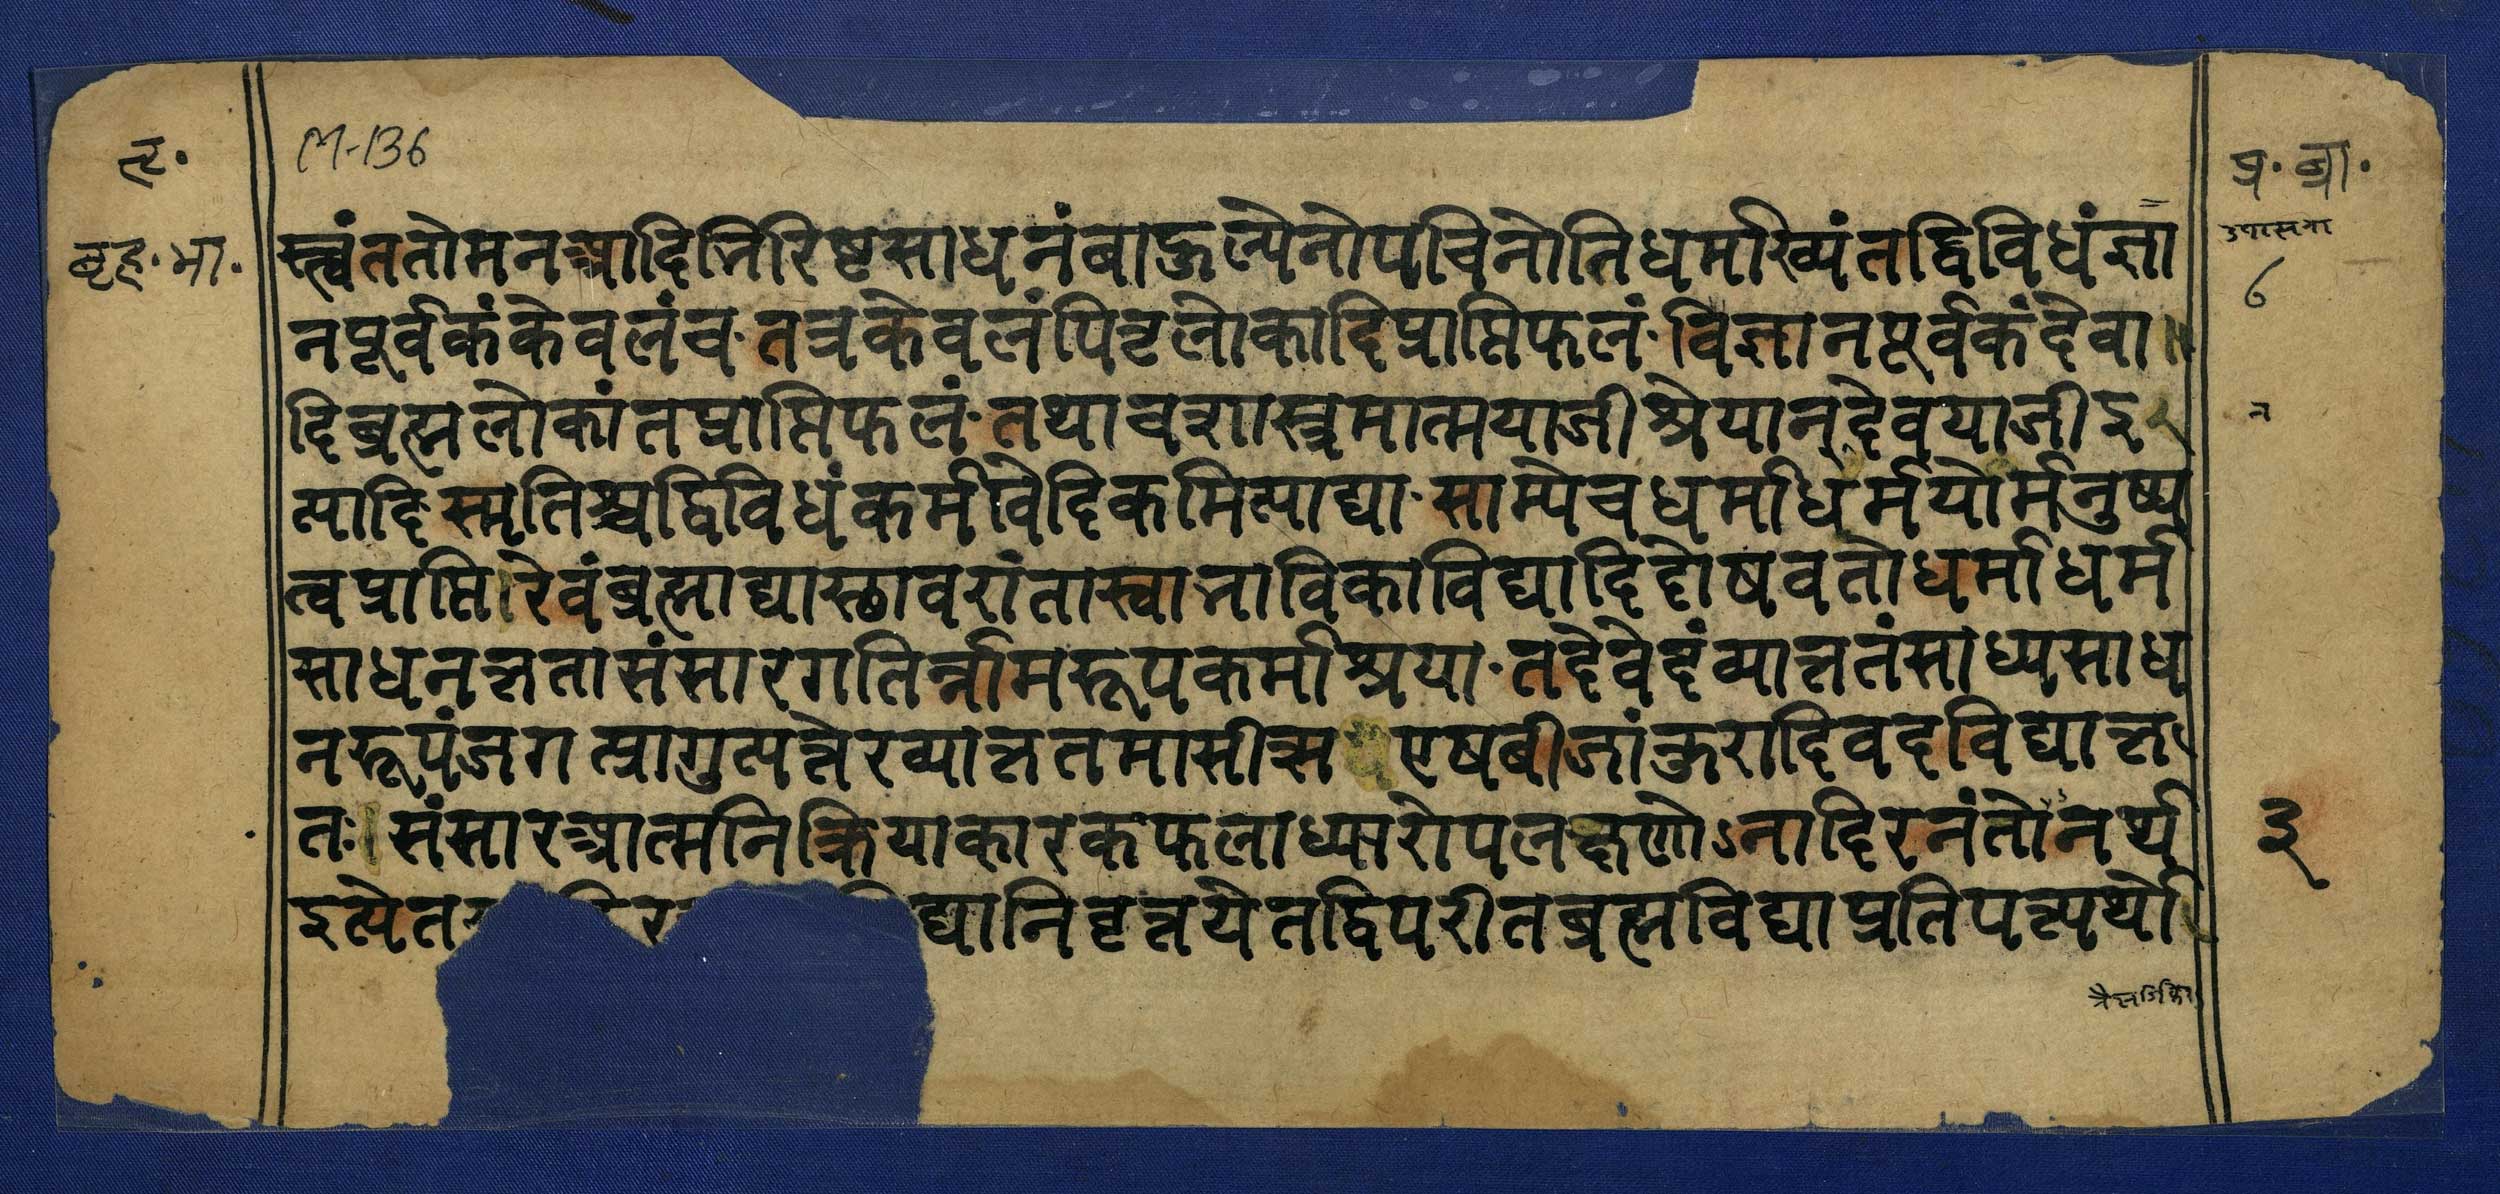 M-136
बृह.भा.
प्र.ब्रा.
उपासना
स्त्वं ततो मनआदिभिरिष्टसाधनं बाहुल्येनोपचिनोति धर्माख्यं तद्द्विविधं ज्ञा
नपूर्वकं केवलं च. तत्र केवलं पितृलोकादिप्राप्तिफलं. विज्ञानपूर्वकं देवा
दिब्रह्मलोकांतप्राप्तिफलं. तथा च शास्त्रमात्मयाजी श्रेयान् देवयाजी इ
त्यादि. स्मृतिश्च द्विविधं कर्म वैदिकमित्याद्या. साम्ये च धर्माधर्मयोर्मनुष्य
त्वप्राप्तिरेवं ब्रह्माद्या स्थावरांता स्वाभाविकाविद्यादिदोषवतो धर्माधर्म
साधनकृता संसारगतिर्न्नामरूपकर्माश्रया. तदेवेदं व्याकृतं साध्यसाध
नरूपं जगत्प्रागुत्पत्तेरव्याकृतमासीत्स एष बीजांकुरादिवदविद्याकृ
तः संसार आत्मनि क्रियाकारकफलाध्यारोपलक्षणोऽनादिरनंतोनर्थ
इत्येत द्यानिवृत्तये तद्विपरीतब्रह्मविद्याप्रतिपत्त्यर्थो
३